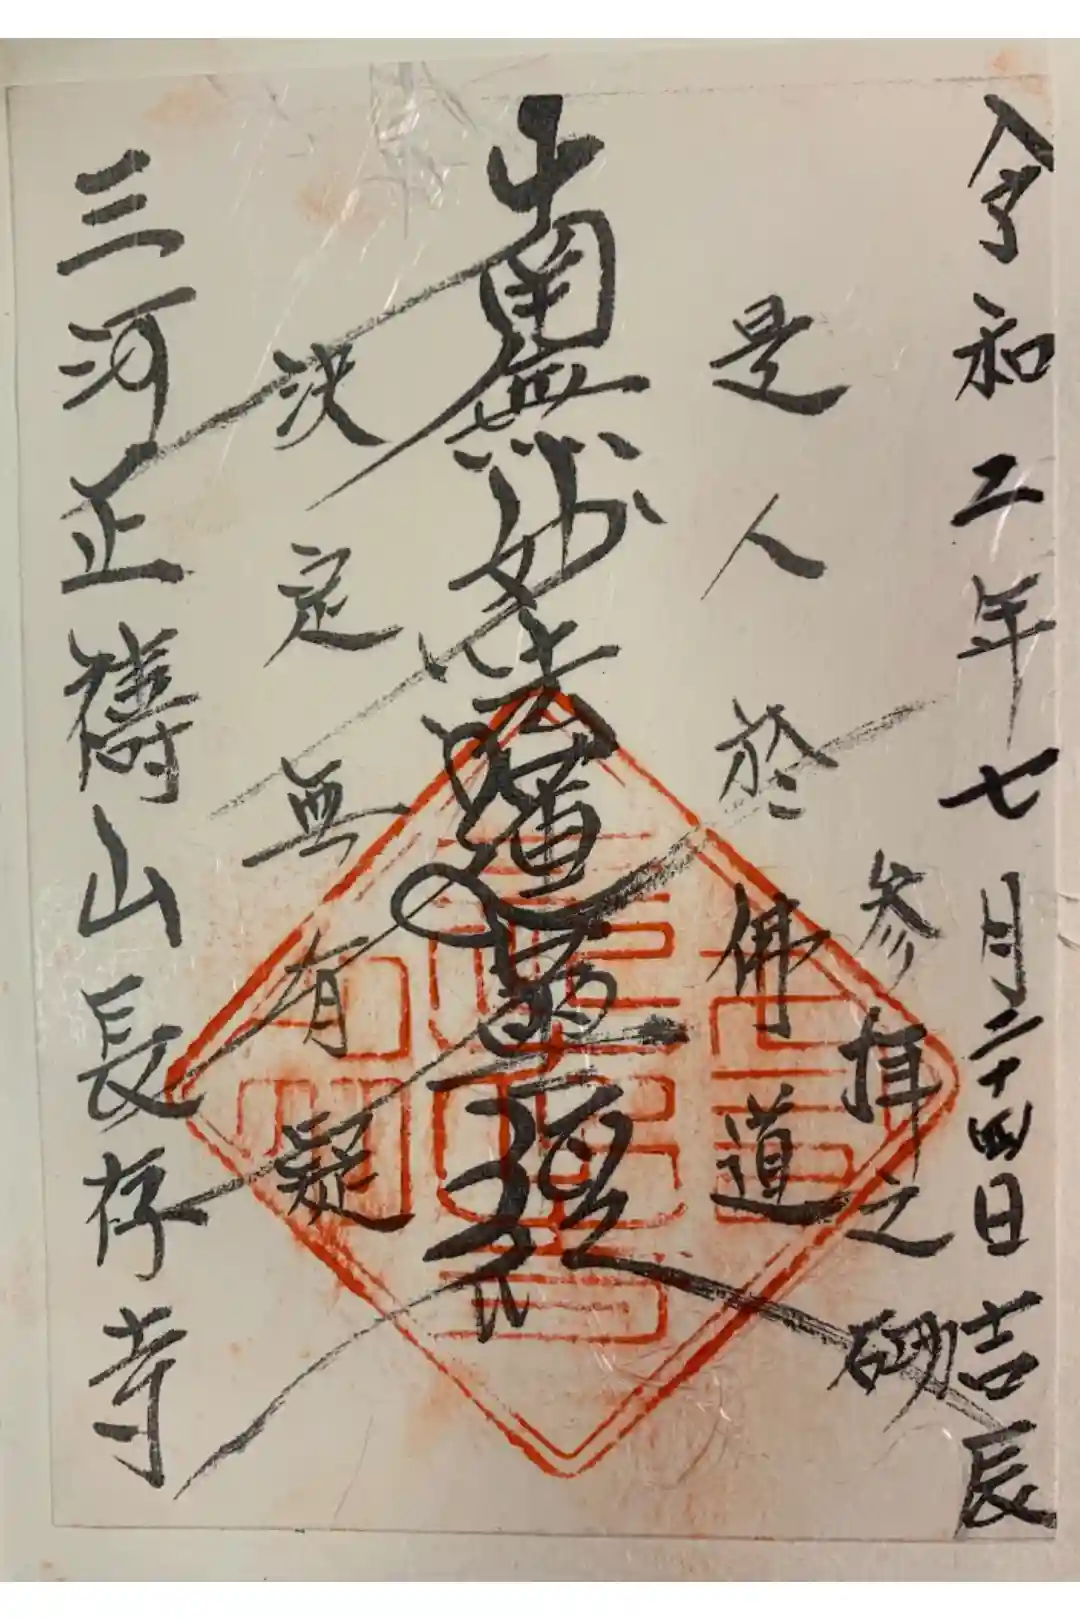 令和二年七月二十四日吉辰
参拝之砌
是人於佛道
南無妙法蓮華經
決定無有疑
三河正祷山長存寺